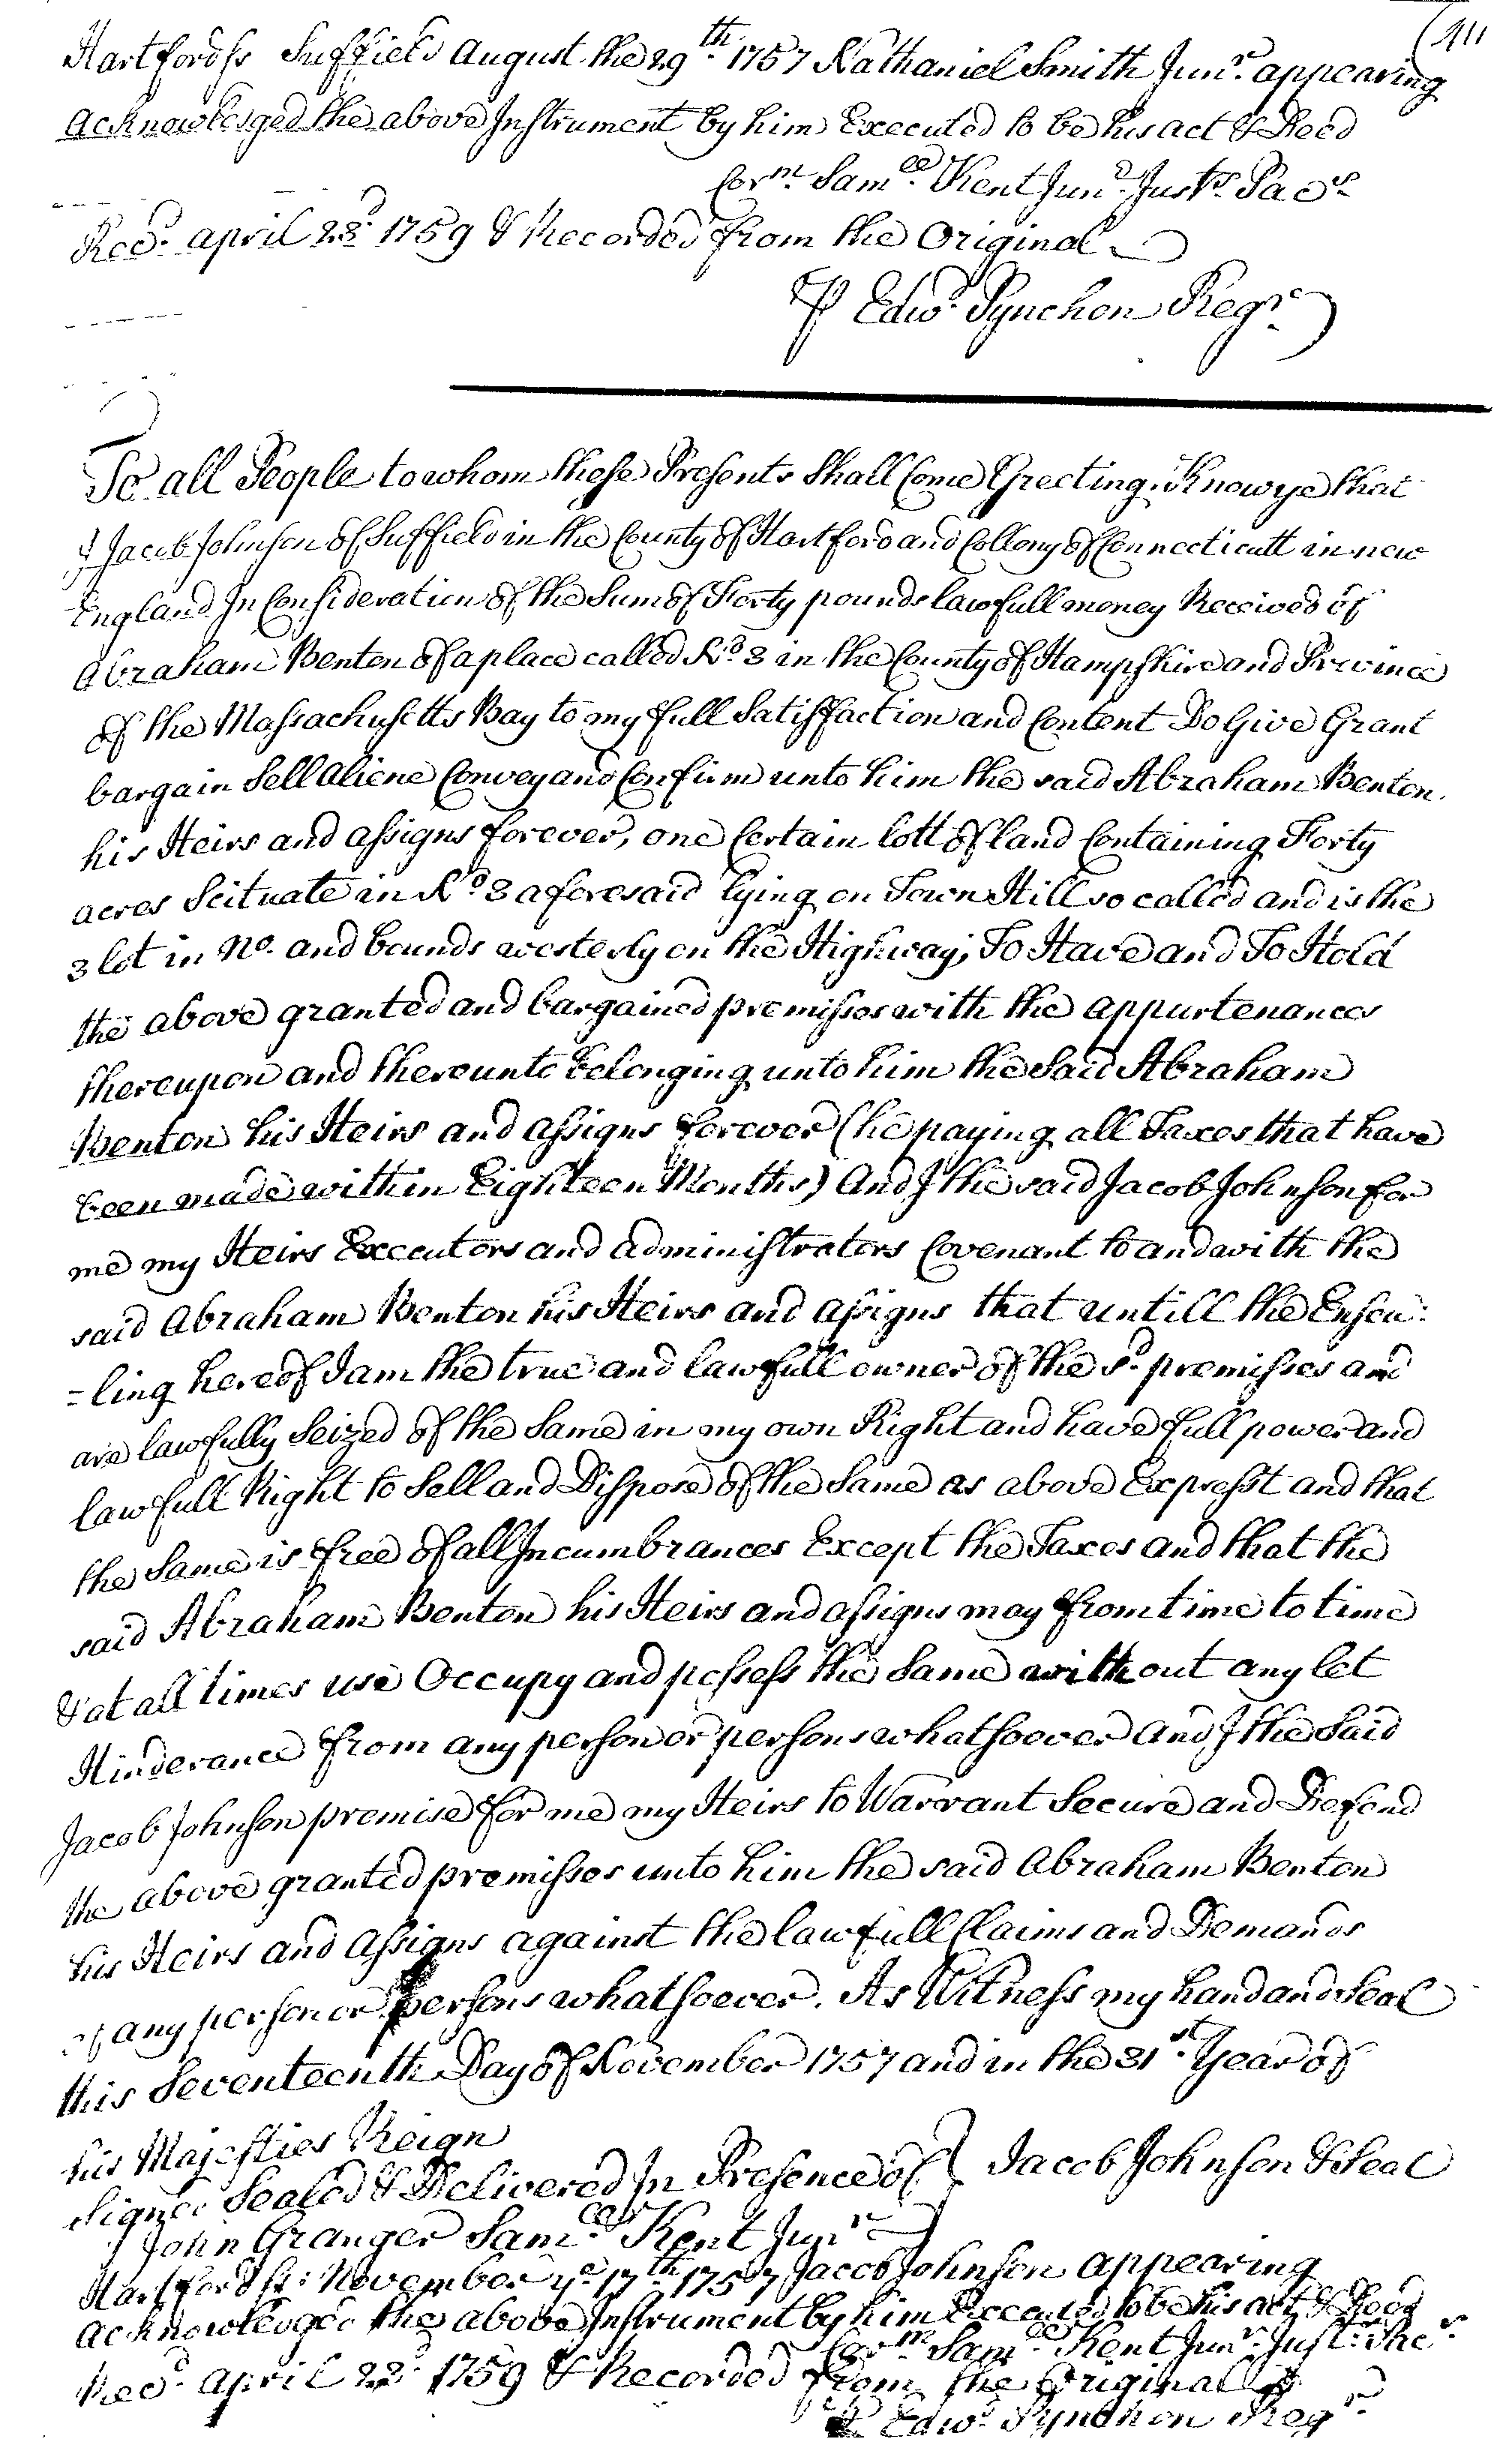 (411
Hartford ss Suffield August the 29th. 1757 Nathaniel Smith Junr. appearing
Acknowledged the above Instrument by him Executed to be his act & Deed
Corm. Samll. Kent Junr. Just. Pacs
Recd. april 23d. 1759 & Recorded from the Original
P Edwd. Pynchon Regr.
To all People to whom these Presents Shall Come Greeting. Know ye that
I Jacob Johnson of Suffield in the County of Hartford and Collony of Connecticutt in new
England In Consideration of the Sum of Forty pounds lawfull money Received of
Abraham Benton of a place called No. 3 in the County of Hampshire and Province
of the Massachusetts Bay to my full Satisfaction and Content Do Give Grant
bargain Sell Aliene Convey and Confirm unto him the said Abraham Benton.
his Heirs and assigns forever, one Certain lott of land Containing Forty
acres Scituate in No. 3 aforesaid lying on Town Hill so called and is the
3 lot in No. and bounds westerly on the Highway; To Have and To Hold
the above granted and bargained premisses with the appurtenances
thereupon and thereunto belonging unto him the Said Abraham
Benton his Heirs and assigns forever (he paying all Taxes that have
been made within Eighteen Months) And I the said Jacob Johnson for
me my Heirs Executors and administrators Covenant to and with the
said Abraham Benton his Heirs and assigns that untill the Ensea:
=ling hereof I am the true and lawfull owner of the sd. premisses and
are lawfully Seized of the Same in my own Right and have full power and
lawfull Right to Sell and Dispose of the Same as above Exprest and that
the Same is free of all Incumbrances Except the Taxes and that the
said Abraham Benton his Heirs and assigns may from time to time
& at all times use Occupy and possess the Same without any let
Hinderance from any person or persons whatsoever And I the Said
Jacob Johnson promise for me my Heirs to Warrant Secure and Defend
the above granted premisses unto him the said Abraham Benton
his Heirs and Assigns against the lawfull Claims and Demands
of any person or persons whatsoever. As Witness my hand and Seal
this Seventeenth Day of November 1757 and in the 31st. Year of
his Majesties Reign
Signed Sealed & Delivered In Presence of } Jacob Johnson & Seal
John Granger Samll. Kent Junr
Hartford ss: November ye. 17th 1757 Jacob Johnson appearing
Acknowledged the above Instrument by him Executed to be his act & Deed
Corm. Samll. Kent Junr. Just: Pacs.
Recd. April 23d. 1759 & Recorded from the Original
P Edwd. Pynchon Regr.